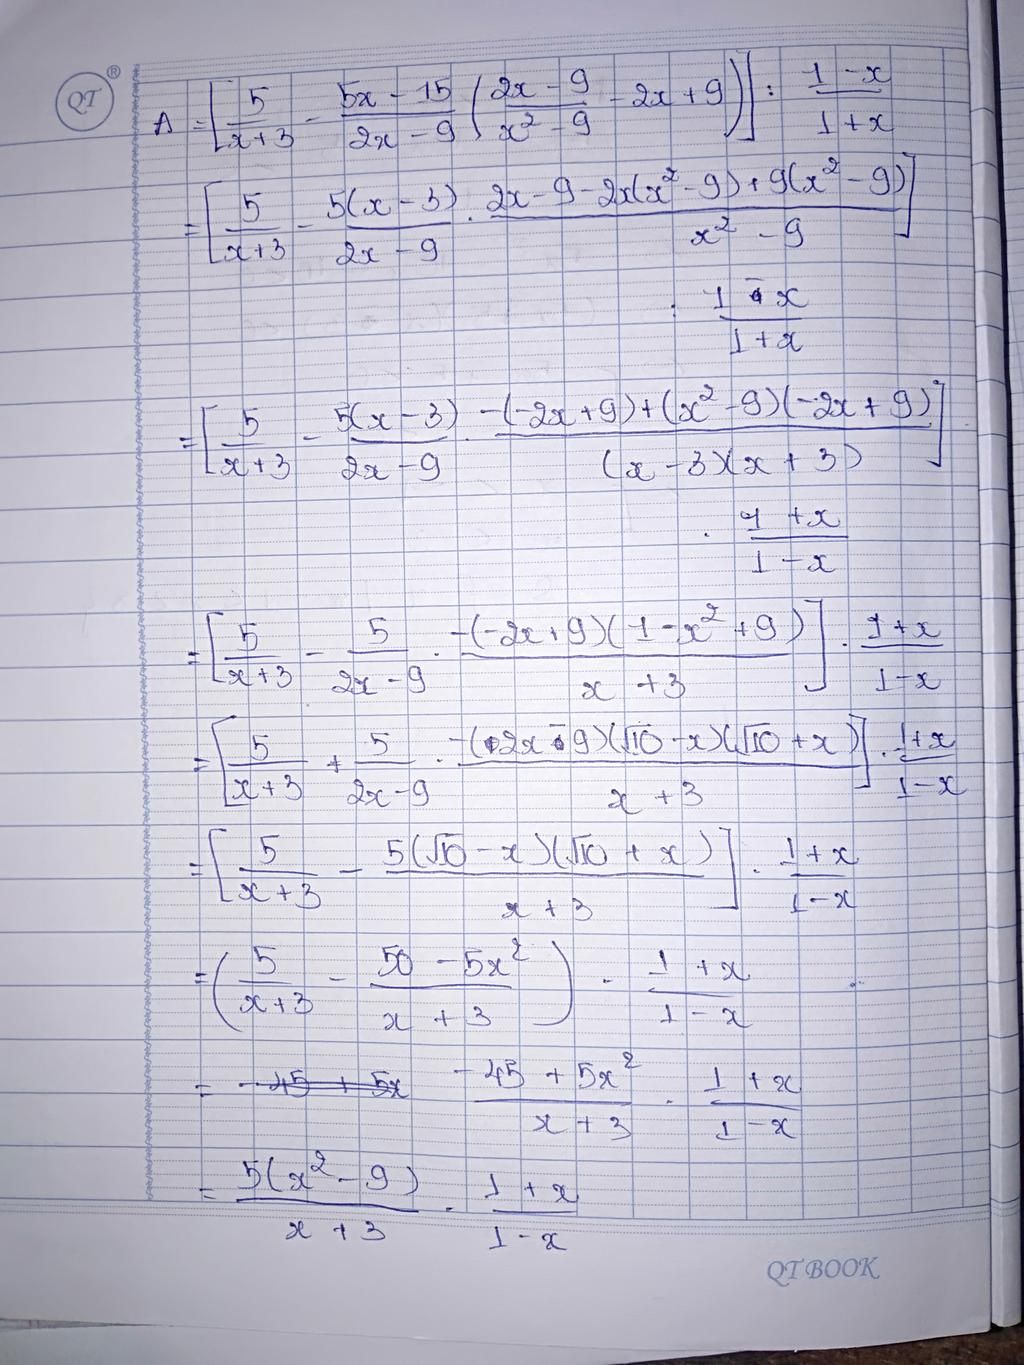 QT ®
A = [5/(x+3) - (5x - 15)/(2x - 9) ((2x - 9)/(x² - 9) - 2x + 9)] : (1 - x)/(1 + x)
= [5/(x+3) - 5(x - 3)/(2x - 9) . (2x - 9 - 2x(x² - 9) + 9(x² - 9))/(x² - 9)]
: (1 - x)/(1 + x)
= [5/(x+3) - 5(x - 3)/(2x - 9) . (-(-2x + 9) + (x² - 9)(-2x + 9))/((x - 3)(x + 3))]
. (1 + x)/(1 - x)
= [5/(x+3) - 5/(2x - 9) . (-(-2x + 9)(1 - x² + 9))/(x + 3)] . (1 + x)/(1 - x)
= [5/(x+3) + 5/(2x - 9) . (-(2x - 9)(√10 - x)(√10 + x))/(x + 3)] . (1 + x)/(1 - x)
= [5/(x + 3) - 5(√10 - x)(√10 + x)/(x + 3)] . (1 + x)/(1 - x)
= (5/(x+3) - (50 - 5x²)/(x + 3)) . (1 + x)/(1 - x)
= -45 + 5x (-45 + 5x²)/(x + 3) . (1 + x)/(1 - x)
= 5(x² - 9)/(x + 3) . (1 + x)/(1 - x)
QT BOOK